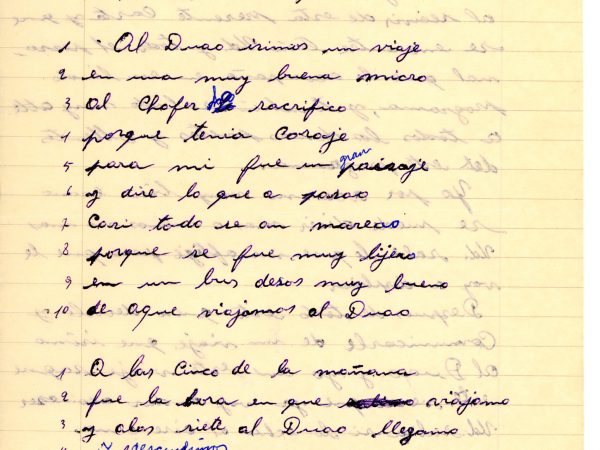 1 Al Duao isimos un viaje
2 en una muy buena micro
3 al Chofer sacrifico
4 porque tenia Coraje
5 para mi fue un gran paisaje
6 y dire lo que a pasao
7 Casi todo se an mareao
8 porque se fue muy lijero
9 en un bus desos muy bueno
10 de aque viajamos al Duao
1 a las Cinco de la mañana
2 fue la hora en que viajamo
3 y alas siete al Duao llegamo